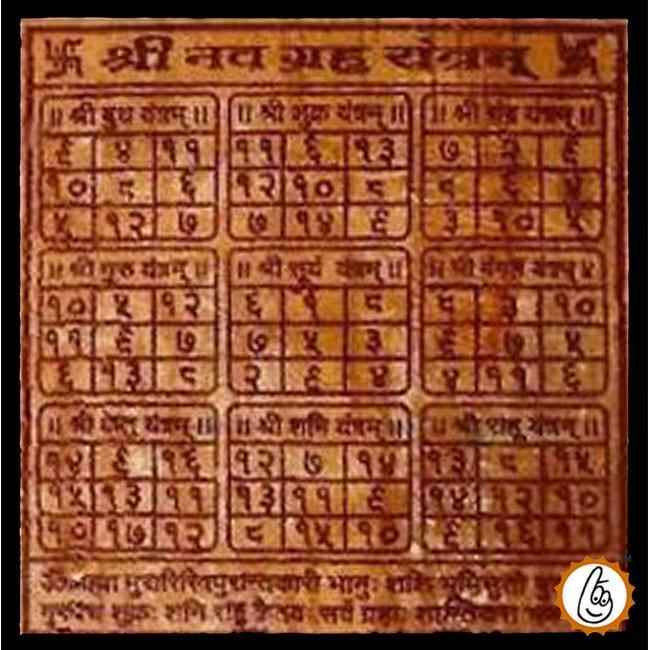 श्री नव ग्रह यंत्रम्
|| श्री बुध यंत्रम् || || श्री शुक्र यंत्रम् || || श्री चंद्र यंत्रम् ||
९ ४ ११ ११ ६ १३ ७ २ ९
१० ८ ६ १२ १० ८ ८ ६ ४
५ १२ ७ ७ १४ ९ ३ १० ५
|| श्री गुरु यंत्रम् || || श्री सुर्य यंत्रम् || || श्री मंगल यंत्रम्
१० ५ १२ ६ १ ८ ८ ३ १०
११ ९ ७ ७ ५ ३ ९ ७ ५
६ १३ ८ २ ९ ४ ४ ११ ६
|| श्री केतु यंत्रम् || || श्री शनि यंत्रम् || || श्री राहू यंत्रम् ||
१४ ९ १६ १२ ७ १४ १३ ८ १५
१५ १३ ११ १३ ११ ९ १४ १२ १०
१० १७ १२ ८ १५ १० ९ १६ ११
भानुः शशि भूमिसुतो
शुक्रः शनि राहु केतवः सर्वे ग्रहाः शान्तिकरा